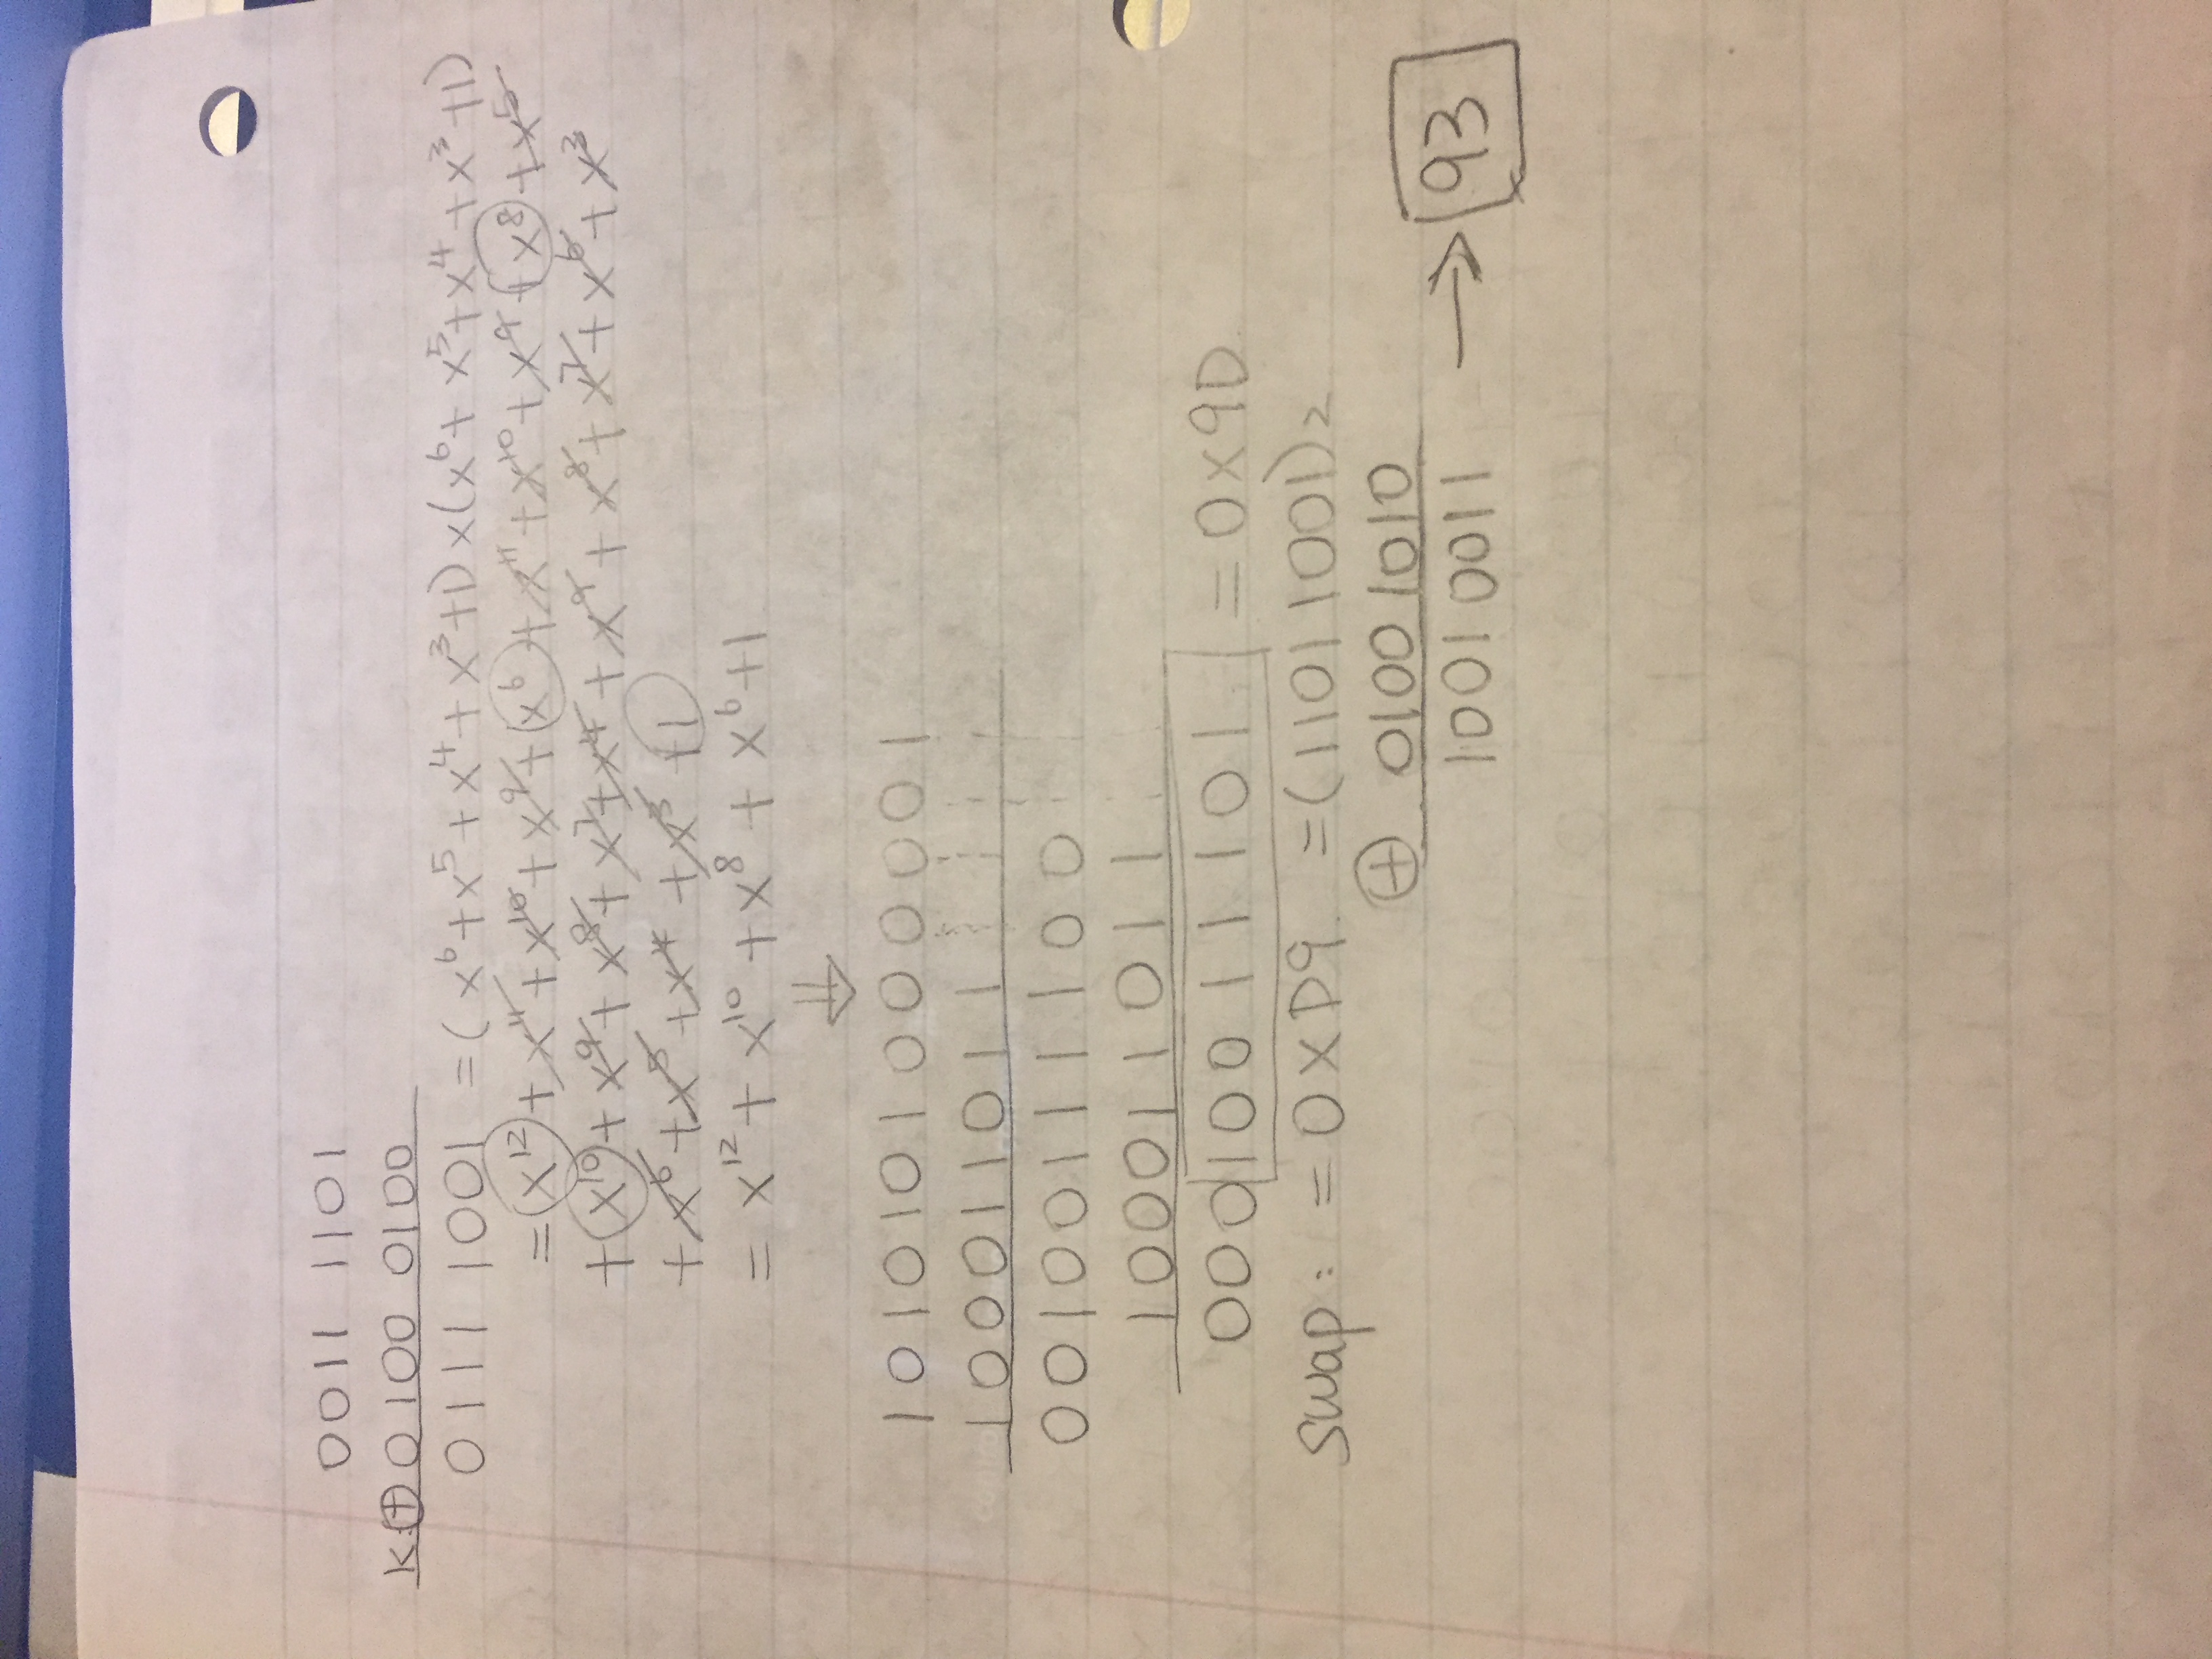 0011 1101
K⊕ 0100 0100
0111 1001 = (x⁶+x⁵+x⁴+x³+1)x(x⁶+x⁵+x⁴+x³+1)
= x¹² + x¹¹ + x¹⁰ + x⁹ + x⁶ + x¹¹ + x¹⁰ + x⁹ + x⁸ + x⁵
+ x¹⁰ + x⁹ + x⁸ + x⁷ + x⁴ + x⁹ + x⁸ + x⁷ + x⁶ + x³
+ x⁶ + x⁵ + x⁴ + x³ + 1
= x¹² + x¹⁰ + x⁸ + x⁶ + 1
⇓
1010101000001
100011011
001001111100
1001101011
00010011101 = 0x9D
Swap: = 0xD9 = (1101 1001)₂
⊕ 0100 1010
1001 0011 → 93